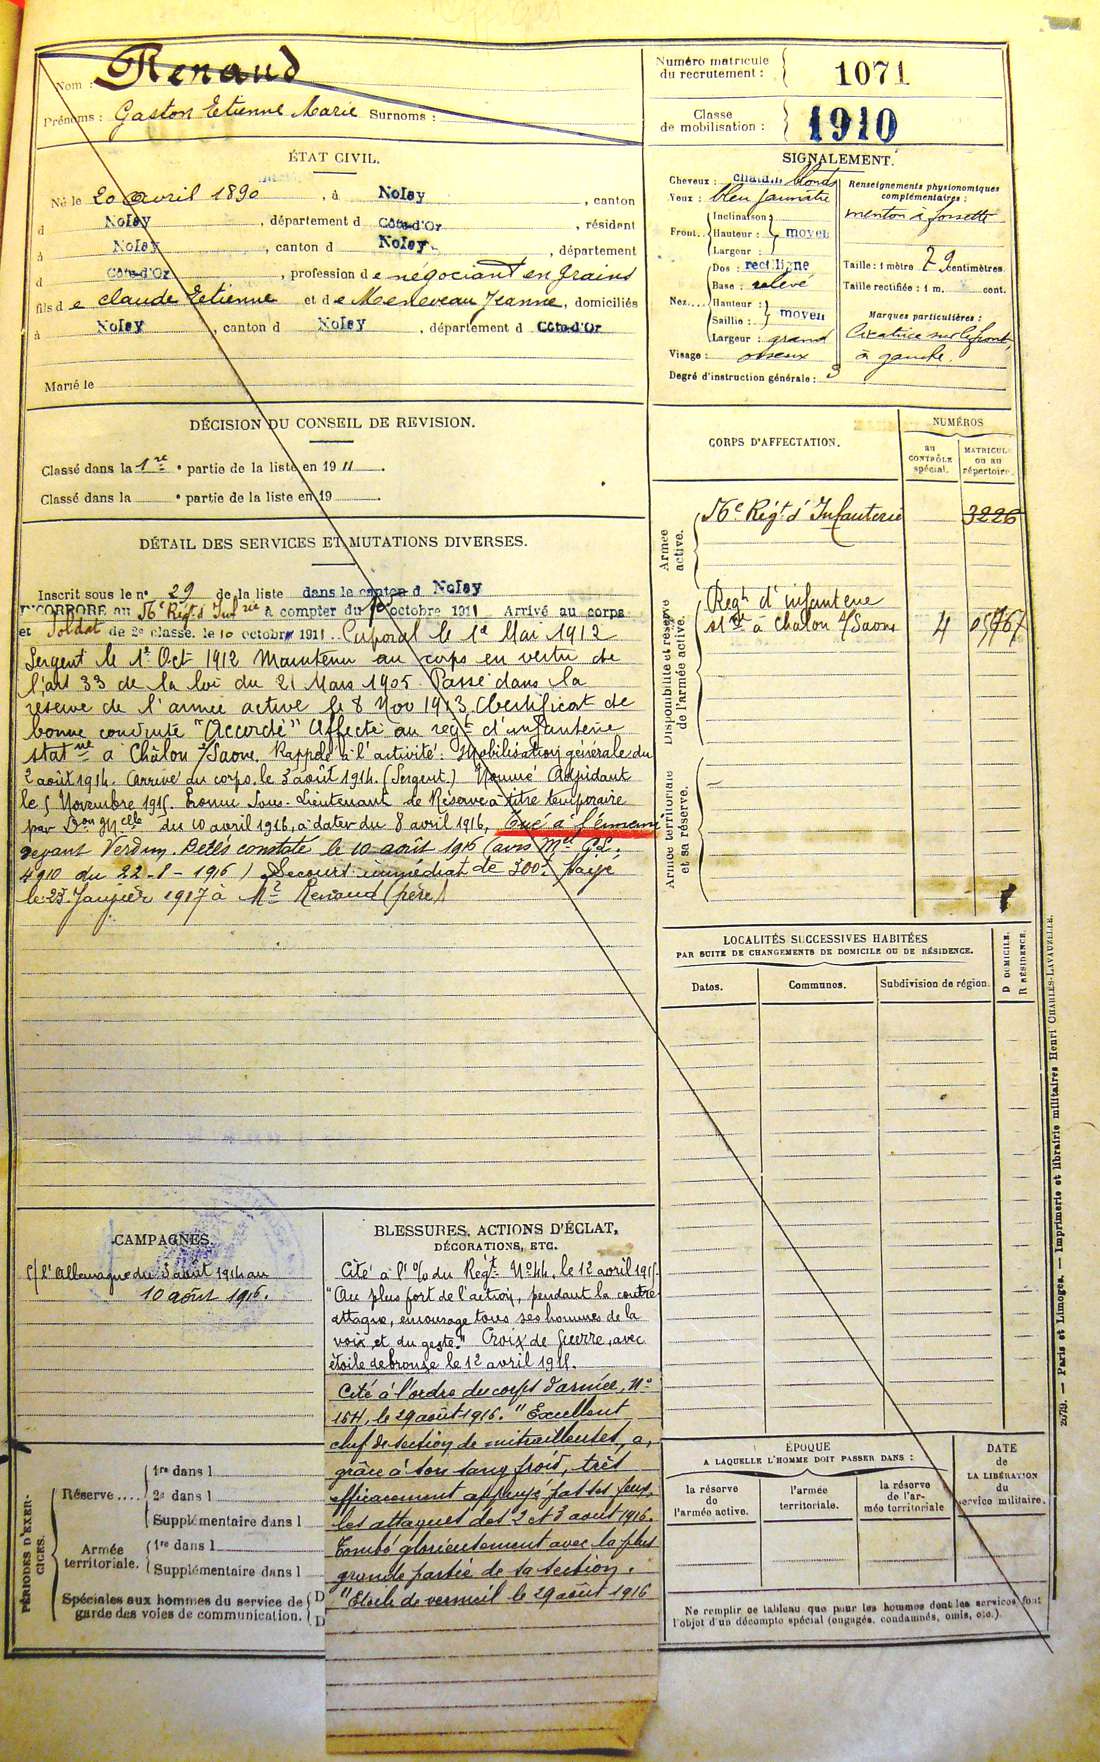 Nom : Renaud
Prénoms : Gaston Etienne Marie Surnoms :
Numéro matricule
du recrutement : 1071
Classe
de mobilisation : 1910
ÉTAT CIVIL.
Né le 20 avril 1890, à Nolay, canton
d Nolay, département d Côte-d'Or, résidant
à Nolay, canton d Nolay, département
d Côte-d'Or, profession de négociant en grains
fils de Claude Etienne et de Meneveau Jeanne, domiciliés
à Nolay, canton d Nolay, département d Côte-d'Or
Marié le
SIGNALEMENT.
Cheveux : blonds
Yeux : bleu jaunâtre
Front. Inclinaison
Hauteur : moyen
Largeur :
Nez. Dos : rectiligne
Base : relevé
Hauteur :
Saillie : moyen
Largeur : grand
Visage : osseux
Degré d'instruction générale : 3
Renseignements physionomiques
complémentaires :
menton à fossette
Taille : 1 mètre 79 centimètres.
Taille rectifiée : 1 m. cent.
Marques particulières :
Cicatrice sur le front,
à gauche.
DÉCISION DU CONSEIL DE REVISION.
Classé dans la 1re partie de la liste en 1911.
Classé dans la e partie de la liste en 19
DÉTAIL DES SERVICES ET MUTATIONS DIVERSES.
Inscrit sous le n° 29 de la liste dans le canton d Nolay
INCORPORÉ au 56e Régt d'Infrie à compter du 10 octobre 1911 Arrivé au corps
et Soldat de 2e classe. le 10 octobre 1911. Caporal le 1er Mai 1912
Sergent le 1er Oct 1912 Maintenu au corps en vertu de
l'art 33 de la loi du 21 Mars 1905. Passé dans la
réserve de l'armée active le 8 Nov 1913. Certificat de
bonne conduite "Accordé" Affecté au régt d'infanterie
statné à Châlon s/Saone. Rappelé à l'activité : Mobilisation générale du
2 août 1914. Arrivé au corps le 3 août 1914. (Sergent) Nommé Adjudant
le 5 Novembre 1915. Promu Sous-Lieutenant de Réserve à titre temporaire
par Don Mlle du 10 avril 1916, à dater du 8 avril 1916, Tué à l'ennemi
devant Verdun. Décès constaté le 10 août 1916 (avis Mel G.L.
4910 du 22-8-1916) Secours immédiat de 300f payé
le 25 Janvier 1917 à Mr Renaud (père)
CORPS D'AFFECTATION.
NUMÉROS
au
CONTRÔLE
spécial.
MATRICULE
ou au
répertoire.
Armée
active.
56e Régt d'Infanterie 3226
Disponibilité et réserve
de l'armée active.
Regt d'infanterie
stné à Chalon s/Saone 4
Armée territoriale
et sa réserve.
LOCALITÉS SUCCESSIVES HABITÉES
PAR SUITE DE CHANGEMENTS DE DOMICILE OU DE RÉSIDENCE.
Dates. Communes. Subdivision de région.
D DOMICILE.
R RÉSIDENCE.
CAMPAGNES.
c/ l'Allemagne du 3 août 1914 au
10 août 1916.
BLESSURES, ACTIONS D'ÉCLAT,
DÉCORATIONS, ETC.
Cité à l'o/o du Régt No 44. le 12 avril 1915.
"Au plus fort de l'action, pendant la contre
attaque, encourage tous ses hommes de la
voix et du geste." Croix de Guerre, avec
étoile de bronze le 12 avril 1915.
Cité à l'ordre du corps d'armée, No
154, le 29 août 1916. "Excellent
chef de section de mitrailleuses, a,
grâce à son sang froid, très
efficacement appuyé par ses feux,
les attaques des 2 et 3 août 1916.
Tombé glorieusement avec la plus
grande partie de sa section.
"Etoile de vermeil le 29 août 1916
PÉRIODES D'EXERCICES.
Réserve 1re dans l
2e dans l
Supplémentaire dans l
Armée
territoriale. 1re dans l
Supplémentaire dans l
Spéciales aux hommes du service de
garde des voies de communication.
D
D
ÉPOQUE
A LAQUELLE L'HOMME DOIT PASSER DANS :
la réserve
de
l'armée active.
l'armée
territoriale.
la réserve
de l'ar-
mée territoriale
DATE
de
LA LIBÉRATION
du
service militaire.
Ne remplir ce tableau que pour les hommes dont les services font
l'objet d'un décompte spécial (engagés, condamnés, omis, etc.).
2079. — Paris et Limoges. — Imprimerie et librairie militaires Henri CHARLES-LAVAUZELLE.